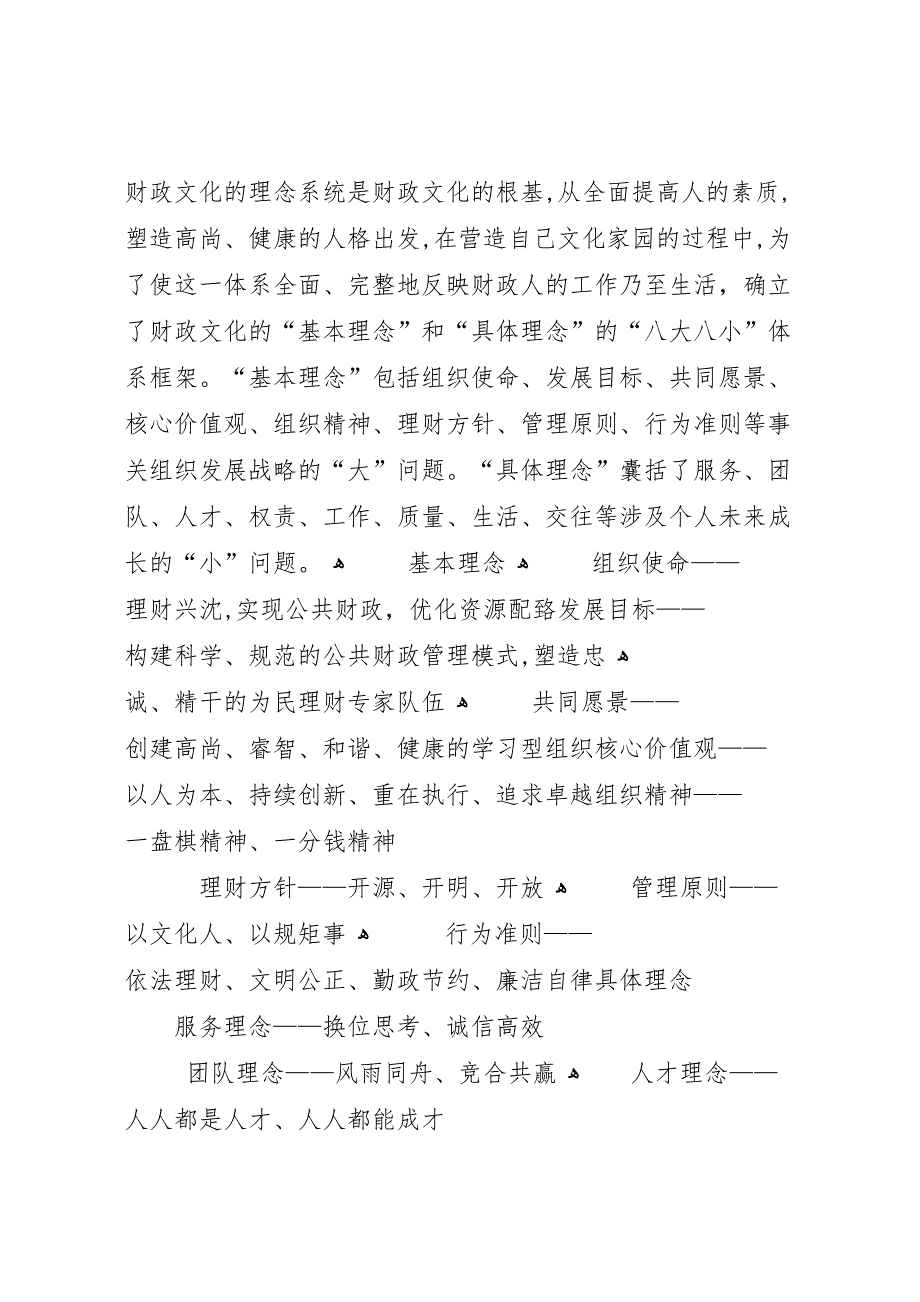 财政文化的理念系统是财政文化的根基,从全面提高人的素质,
塑造高尚、健康的人格出发,在营造自己文化家园的过程中,为
了使这一体系全面、完整地反映财政人的工作乃至生活，确立
了财政文化的“基本理念”和“具体理念”的“八大八小”体
系框架。“基本理念”包括组织使命、发展目标、共同愿景、
核心价值观、组织精神、理财方针、管理原则、行为准则等事
关组织发展战略的“大”问题。“具体理念”囊括了服务、团
队、人才、权责、工作、质量、生活、交往等涉及个人未来成
长的“小”问题。 ﻫ 基本理念 ﻫ 组织使命——
理财兴沈,实现公共财政，优化资源配臵发展目标——
构建科学、规范的公共财政管理模式,塑造忠 ﻫ
诚、精干的为民理财专家队伍 ﻫ 共同愿景——
创建高尚、睿智、和谐、健康的学习型组织核心价值观——
以人为本、持续创新、重在执行、追求卓越组织精神——
一盘棋精神、一分钱精神
理财方针——开源、开明、开放 ﻫ 管理原则——
以文化人、以规矩事 ﻫ 行为准则——
依法理财、文明公正、勤政节约、廉洁自律具体理念
服务理念——换位思考、诚信高效
团队理念——风雨同舟、竞合共赢 ﻫ 人才理念——
人人都是人才、人人都能成才